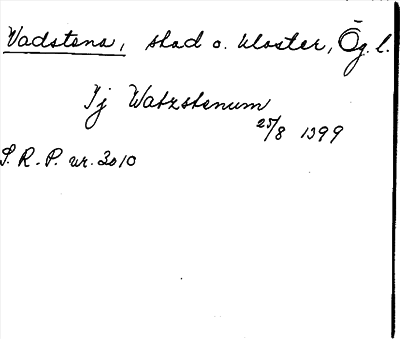 Vadstena, stad o. kloster, Ög. l.
Jj Watzstenum
25/8 1399
S. R. P. nr. 3010